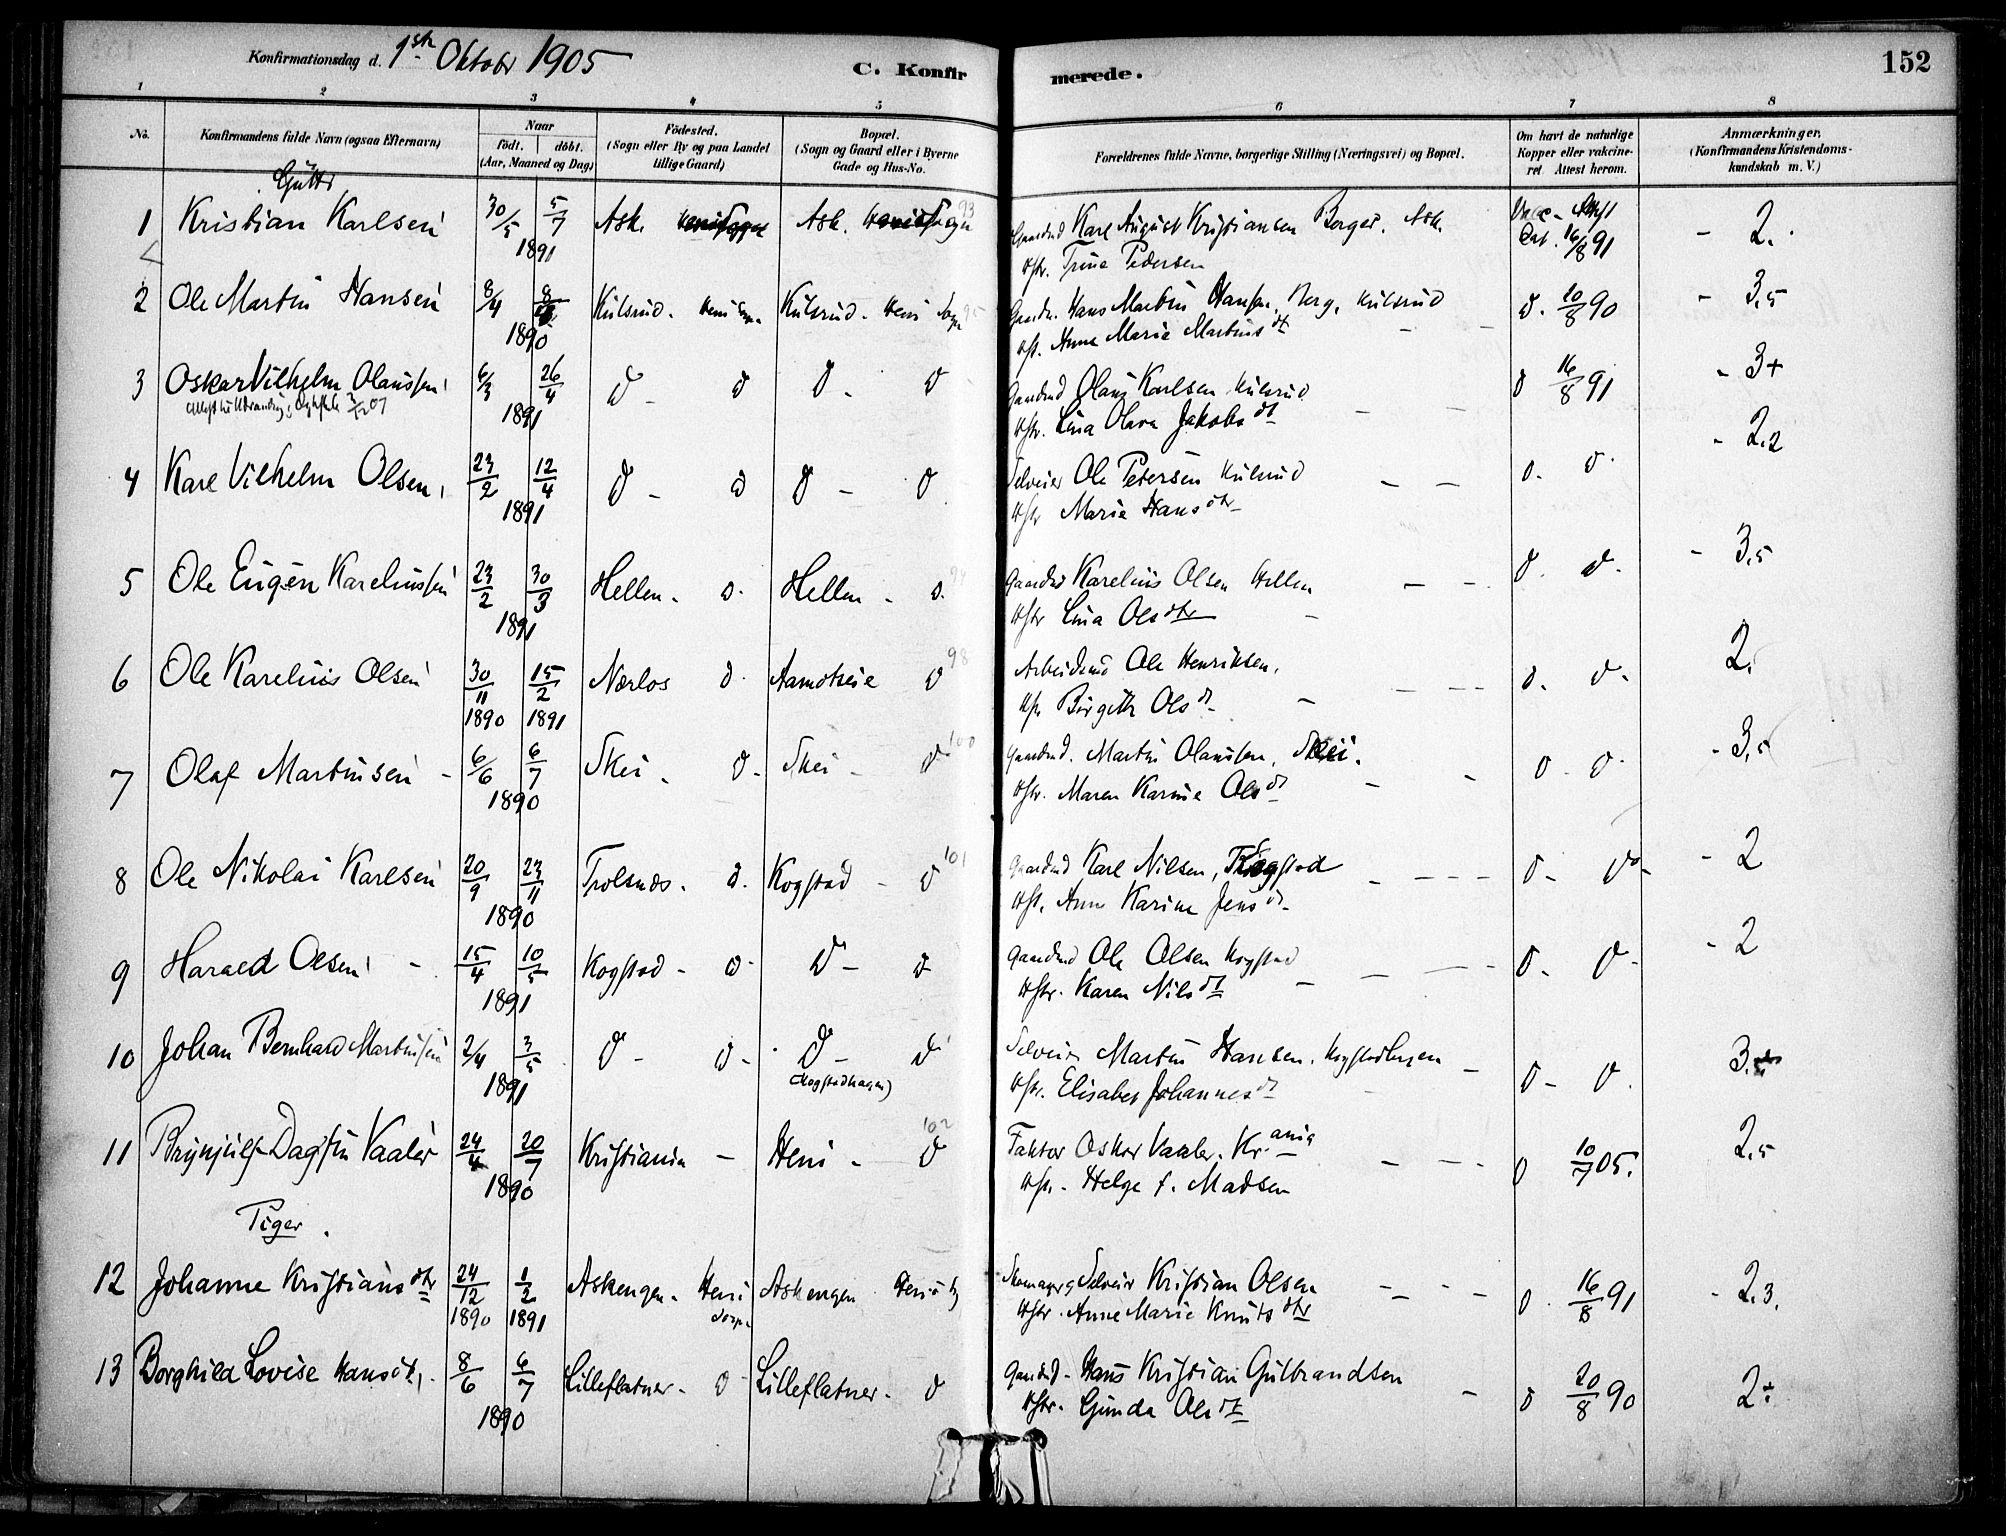 Konfirmationsdag d. 1ste Oktobr 1905
C. Konfirmerede.
152
1 2 3 4 5 6 7 8
No.
Konfirmandens fulde Navn (ogsaa Efternavn)
Naar
födt. döbt.
(Aar, Maaned og Dag)
Födested.
(Sogn eller By og paa Landet
tillige Gaard)
Bopæl.
(Sogn og Gaard eller i Byerne
Gade og Hus-No.
Forældrenes fulde Navne, borgerlige Stilling (Næringsvei) og Bopæl.
Om havt de naturlige
Kopper eller vakcine-
ret Attest herom.
Anmærkninger.
(Konfirmandens Kristendoms-
kundskab m. V.)
Gutter
1 Kristian Karlsen 30/5 5/7 Ask. Ask. 93 Gaardmd Karl August Kristiansen Berger. Ask. Vacc. Attest - 2.
1891 Hstr. Trine Pedersen Dat. 16/8 91
2 Ole Martin Hansen 8/4 Kulsrud. Heni Sogn Kulsrud. Heni Sogn 95 Gaardm. Hans Martin Hansen, Berg, Kulsrud D. 10/8 90 - 3,5
1890 Hst. Anne Marie Martinsdt
3 Oskar Vilhelm Olaussen 6/3 26/4 D - D D - D Gaardmd Olaus Karlsen Kulsrud D 16/8 91 - 3+
1891 Hstr. Lina Olava Jakobsdt
4 Karl Vilhelm Olsen 23/2 12/4 D - D D - D Selveier Ole Petersen Kulsrud D. D. - 2,2
1891 Hstr Marie Hansdtr
5 Ole Eugen Kareliussen 23/2 30/3 Hellen - D. Hellen - D. Gaardmd Karelius Olsen Hellen D. D. - 3,5
1891 Hstr Lina Olsdtr
6 Ole Karelius Olsen 30/11 15/2 Nærlos D. Aamotseie D 98 Arbeidsmd Ole Henriksen. D. D. 2.
1890 1891 Hstr Birgitte Olsdt
7 Olaf Martinsen - 6/6 6/7 Skei - D - Skei - D 100 Gaardmd. Martin Olaussen, Skei. D. D. - 3,5
1890 Hstr. Maren Karine Olsdt
8 Ole Nikolai Karlsen 20/9 23/11 Trolsnæs. D. Kogstad - D 101 Gaardmd Karl Nilsen, Kogstad D - D - - 2
1890 Hst. Anne Karine Jensdt
9 Harald Olsen - 15/4 10/5 Kogstad - D - D - D Gaardmd Ole Olsen Kogstad D - D - - 2
1891 Hstr. Karen Nilsdt
10 Johan Bernhard Martinsen 2/4 3/5 D - D - D - D Selveier Martin Hansen. Kogstadhagen D - D. 3.
1891 (Kogstadhagen) Hstr. Elisabet Johannesdt
11 Brynjulf Dagfin Vaaler 24/4 20/7 Kristiania - Heni - D 102 Faktor Oskar Vaaler. Kr.ania D 10/7 05. 2,5
1890 Hstr. Helga f. Madsen
Piger.
12 Johanne Kristiansdtr 24/12 1/2 Askengen. Heni Sogn Askengen Gaardmd Skomager, Selveier Kristian Olsen D. 16/8 91 - 2,3.
1890 1891 Hstr. Anne Marie Knutsdtr
13 Borghild Lovise Hansdt. 8/6 6/7 Lilleflatner - D Lilleflatner - D Gaardmd - Hans Kristian Gulbrandsen D 20/8 90 2+
1890 Hstr. Gunda Olsdt